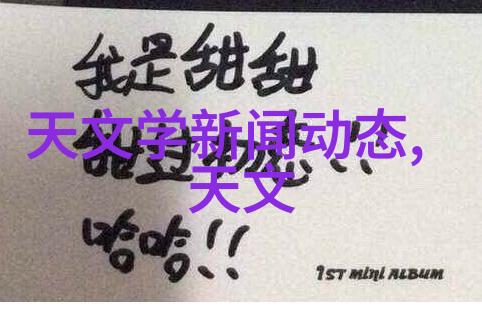 我是甜甜
天文学新闻动态,
天文
哈哈!!
1ST MINI ALBUM